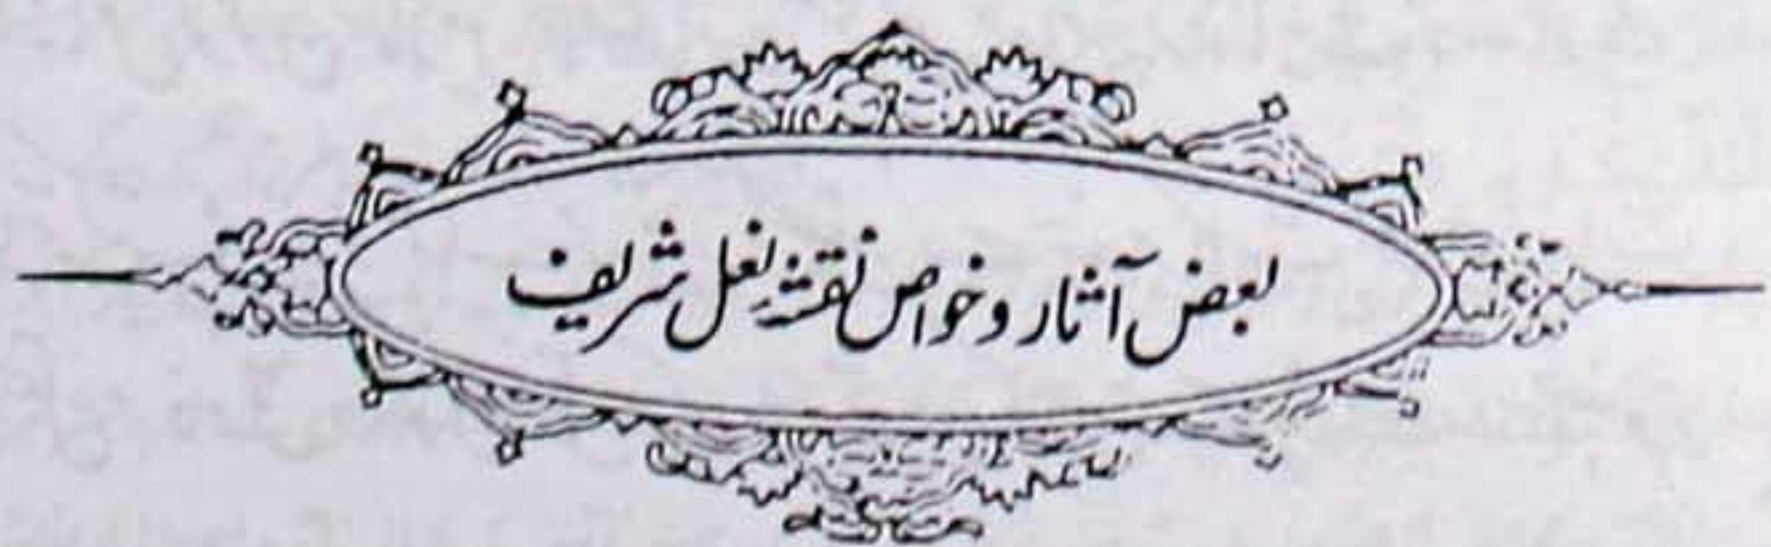 بعض آثار و خواص نقشہ نعل شریف